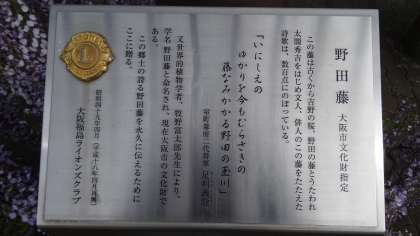 野田藤 大阪市文化財指定
この藤は古くから吉野の桜、野田の藤とうたわれ
太閤秀吉をはじめ文人、俳人のこの藤をたたえた
詩歌は、数百点にのぼっている。
「いにしえの
ゆかりを今もむらさきの
藤なみかかる野田の玉川」
室町幕府二代将軍 足利義詮
又世界的植物学者、牧野富太郎先生により、
学名 野田藤と命名され、現在大阪市の文化財で
ある。
この郷土の誇る野田藤を永久に伝えるために
ここに贈る。
昭和四十九年四月(平成十八年四月再興)
大阪福島ライオンズクラブ
L